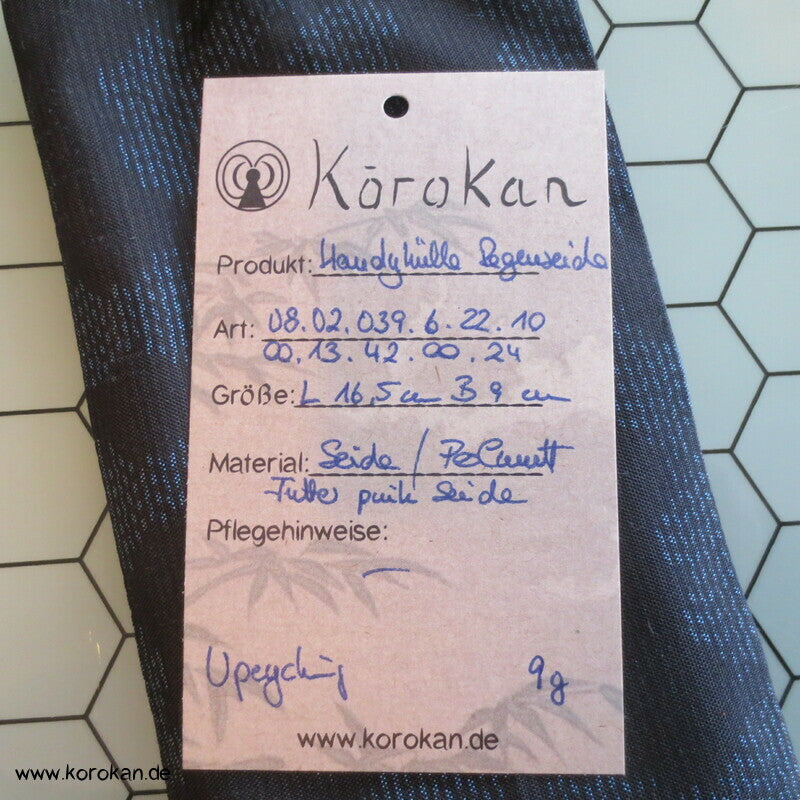 Körokan
Produkt: Handyhülle Regenseide
Art: 08.02.039.6.22.10
00.13.42.00.24
Größe: L 16,5 cm B 9 cm
Material: Seide /
Futter pink Seide
Pflegehinweise:
—
Upcycling 9g
www.korokan.de
www.korokan.de